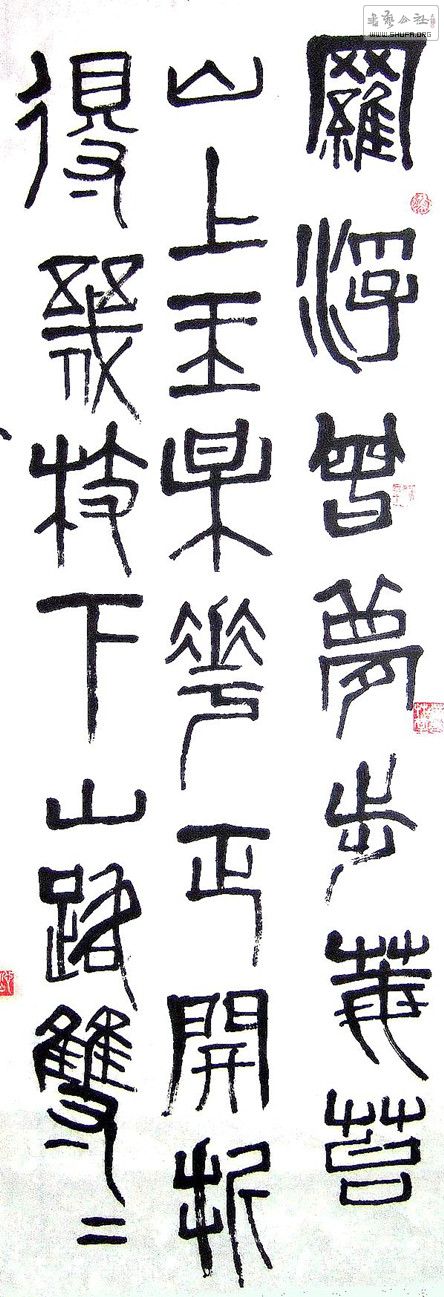 書藝公社
WWW.SHUFA.ORG
羅浮曾夢步莓苔
山上玉某花正開折
得幾枝下山路雙二